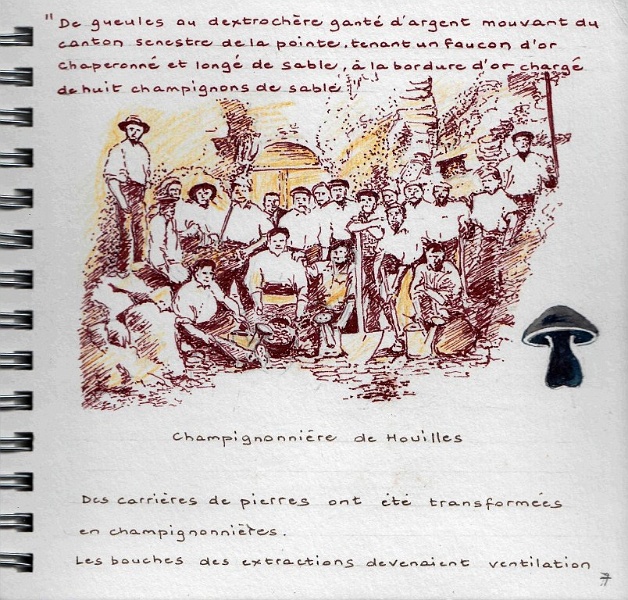 "De gueules au dextrochère ganté d'argent mouvant du
canton senestre de la pointe, tenant un faucon d'or
chaperonné et longé de sable, à la bordure d'or chargé
de huit champignons de sable"
Champignonnière de Houilles
Des carrières de pierres ont été transformées
en champignonnières.
Les bouches des extractions devenaient ventilation
7